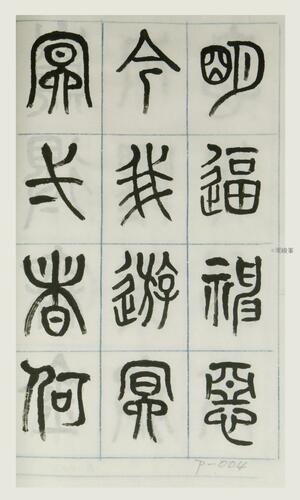 明逼神惡
今我遊冥
冥弋者何
P-004